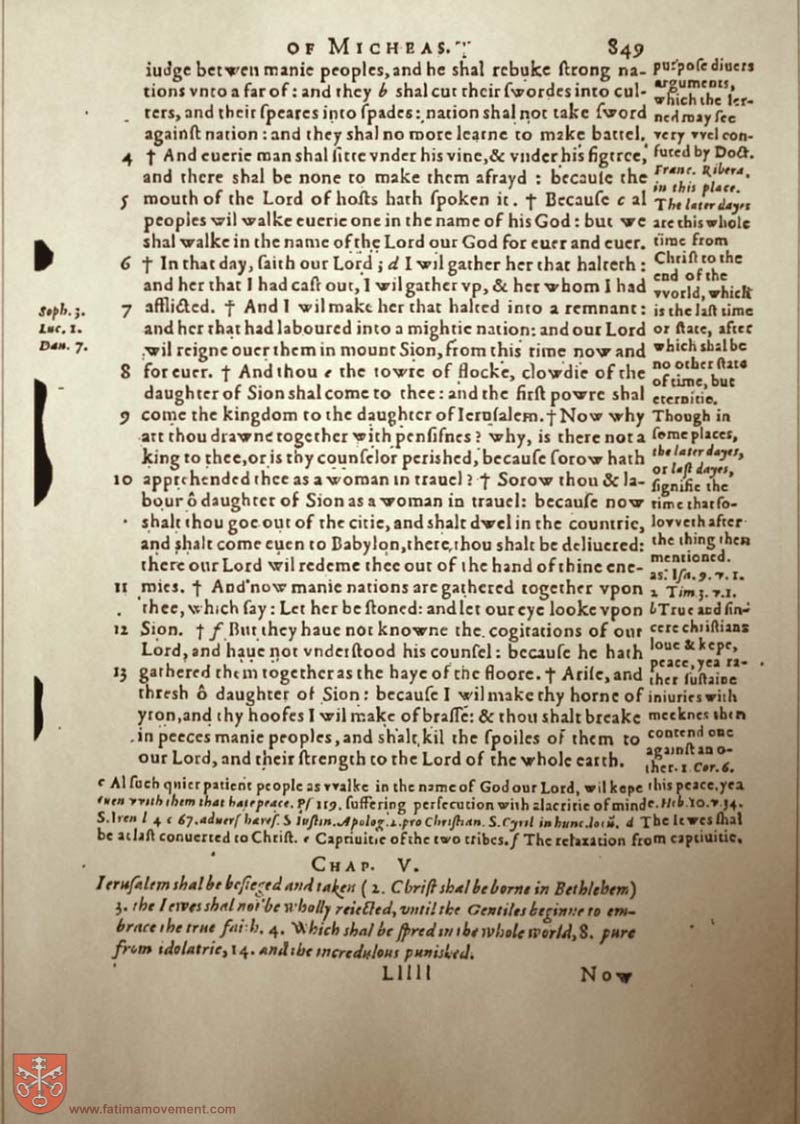 OF MICHEAS.
849
iudge betwen manie peoples, and he shal rebuke ſtrong na-
tions vnto a far of: and they b shal cut their ſwordes into cul-
ters, and their ſpeares into ſpades: nation shal not take ſword
againſt nation: and they shal no more learne to make battel.
4 † And euerie man shal ſitte vnder his vine, & vnder his figtree,
and there shal be none to make them afrayd : becauſe the
5 mouth of the Lord of hoſts hath ſpoken it. † Becauſe c al
peoples wil walke euerie one in the name of his God: but we
shal walke in the name of the Lord our God for euer and euer.
6 † In that day, ſaith our Lord ; d I wil gather her that halteth :
and her that I had caſt out, I wil gather vp, & her whom I had
7 afflicted. † And I wil make her that halted into a remnant:
and her that had laboured into a mightie nation: and our Lord
wil reigne ouer them in mount Sion, from this time now and
8 for euer. † And thou e the towre of flocke, clowdie of the
daughter of Sion shal come to thee: and the firſt powre shal
9 come the kingdom to the daughter of Ieruſalem. † Now why
art thou drawne together with penſifnes? why, is there not a
king to thee, or is thy counſelor perished, becauſe ſorow hath
10 apprehended thee as a woman in trauel? † Sorow thou & la-
bour ô daughter of Sion as a woman in trauel: becauſe now
shalt thou goe out of the citie, and shalt dwel in the countrie,
and shalt come euen to Babylon, there thou shalt be deliuered:
there our Lord wil redeme thee out of the hand of thine ene-
11 mies. † And now manie nations are gathered together vpon
thee, which ſay: Let her be ſtoned: and let our eye looke vpon
12 Sion. † f But they haue not knowne the cogitations of our
Lord, and haue not vnderſtood his counſel: becauſe he hath
13 gathered them together as the haye of the floore. † Ariſe, and
thresh ô daughter of Sion: becauſe I wil make thy horne of
yron, and thy hoofes I wil make of braſſe: & thou shalt breake
in peeces manie peoples, and shalt kil the ſpoiles of them to
our Lord, and their ſtrength to the Lord of the whole earth.
Soph. 3.
Luc. 1.
Dan. 7.
purpoſe diuers
arguments,
which the ler-
ned may ſee
very vvel con-
futed by Doct.
Franc. Ribera,
in this place.
The later dayes
are this whole
time from
Chriſt to the
end of the
vvorld, which
is the laſt time
or ſtate, after
which shal be
no other ſtate
of time, but
eternitie.
Though in
ſome places,
the later dayes,
or laſt dayes,
ſignifie the
time that fo-
lovveth after
the thing then
mentioned.
as. Iſa. 9. v. 1.
2 Tim 3. v. 1.
b True and ſin-
cere chriſtians
loue & kepe,
peace, yea ra-
ther ſuſtaine
iniuries with
meeknes then
contend one
againſt an o-
ther. 1. Cor. 6.
c Al ſuch quier patient people as vvalke in the name of God our Lord, wil kepe this peace, yea
euen vvith them that hate peace. Pſ 119. ſuffering perſecution with alacritie of minde. Heb. 10. v. 34.
S. Iren l 4 c 67. aduerſ hæreſ. S Iuſtin. Apolog. 2. pro Chriſtian. S. Cyril in hunc locū. d The Iewes shal
be at laſt conuerted to Chriſt. e Captiuitie of the two tribes. f The relaxation from captiuitie.
CHAP. V.
Ieruſalem shal be beſieged and taken (2. Chriſt shal be borne in Bethlehem)
3. the Iewes shal not be wholly reiected, vntil the Gentiles beginne to em-
brace the true faith. 4. Which shal be ſpred in the whole world, 8. pure
from idolatrie, 14. and the incredulous punished.
LIIII
Now
www.fatimamovement.com